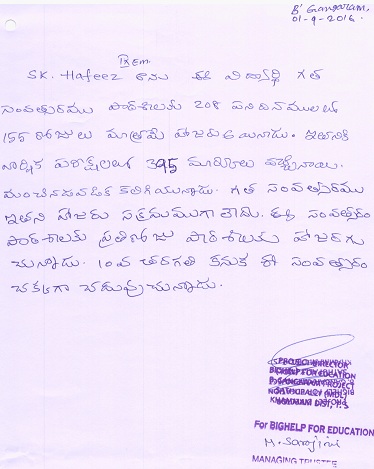 B' Gangaram,
01-9-2016.
IX Em
SK. Hafeez అను ఈ విద్యార్థి గత
సంవత్సరము పాఠశాలకు 208 పనిదినములకు
155 రోజులు మాత్రమే హాజరు అయినాడు. ఇతనికి
వార్షిక పరీక్షలలో 395 మార్కులు వచ్చినాయి.
మంచినడవడిక కలిగియున్నాడు. గత సంవత్సరము
ఇతని హాజరు సక్రమముగా లేదు. ఈ సంవత్సరం
పాఠశాలకు ప్రతిరోజు పాఠశాలకు హాజరగు
చున్నాడు. 10వ తరగతి కనుక ఈ సంవత్సరం
చక్కగా చదువుచున్నాడు.
PROJECT DIRECTOR
BIGHELP FOR EDUCATION
SATHUPALLY (MDL)
KHAMMAM DIST, T.S
For BIGHELP FOR EDUCATION
M. Sarojini
MANAGING TRUSTEE